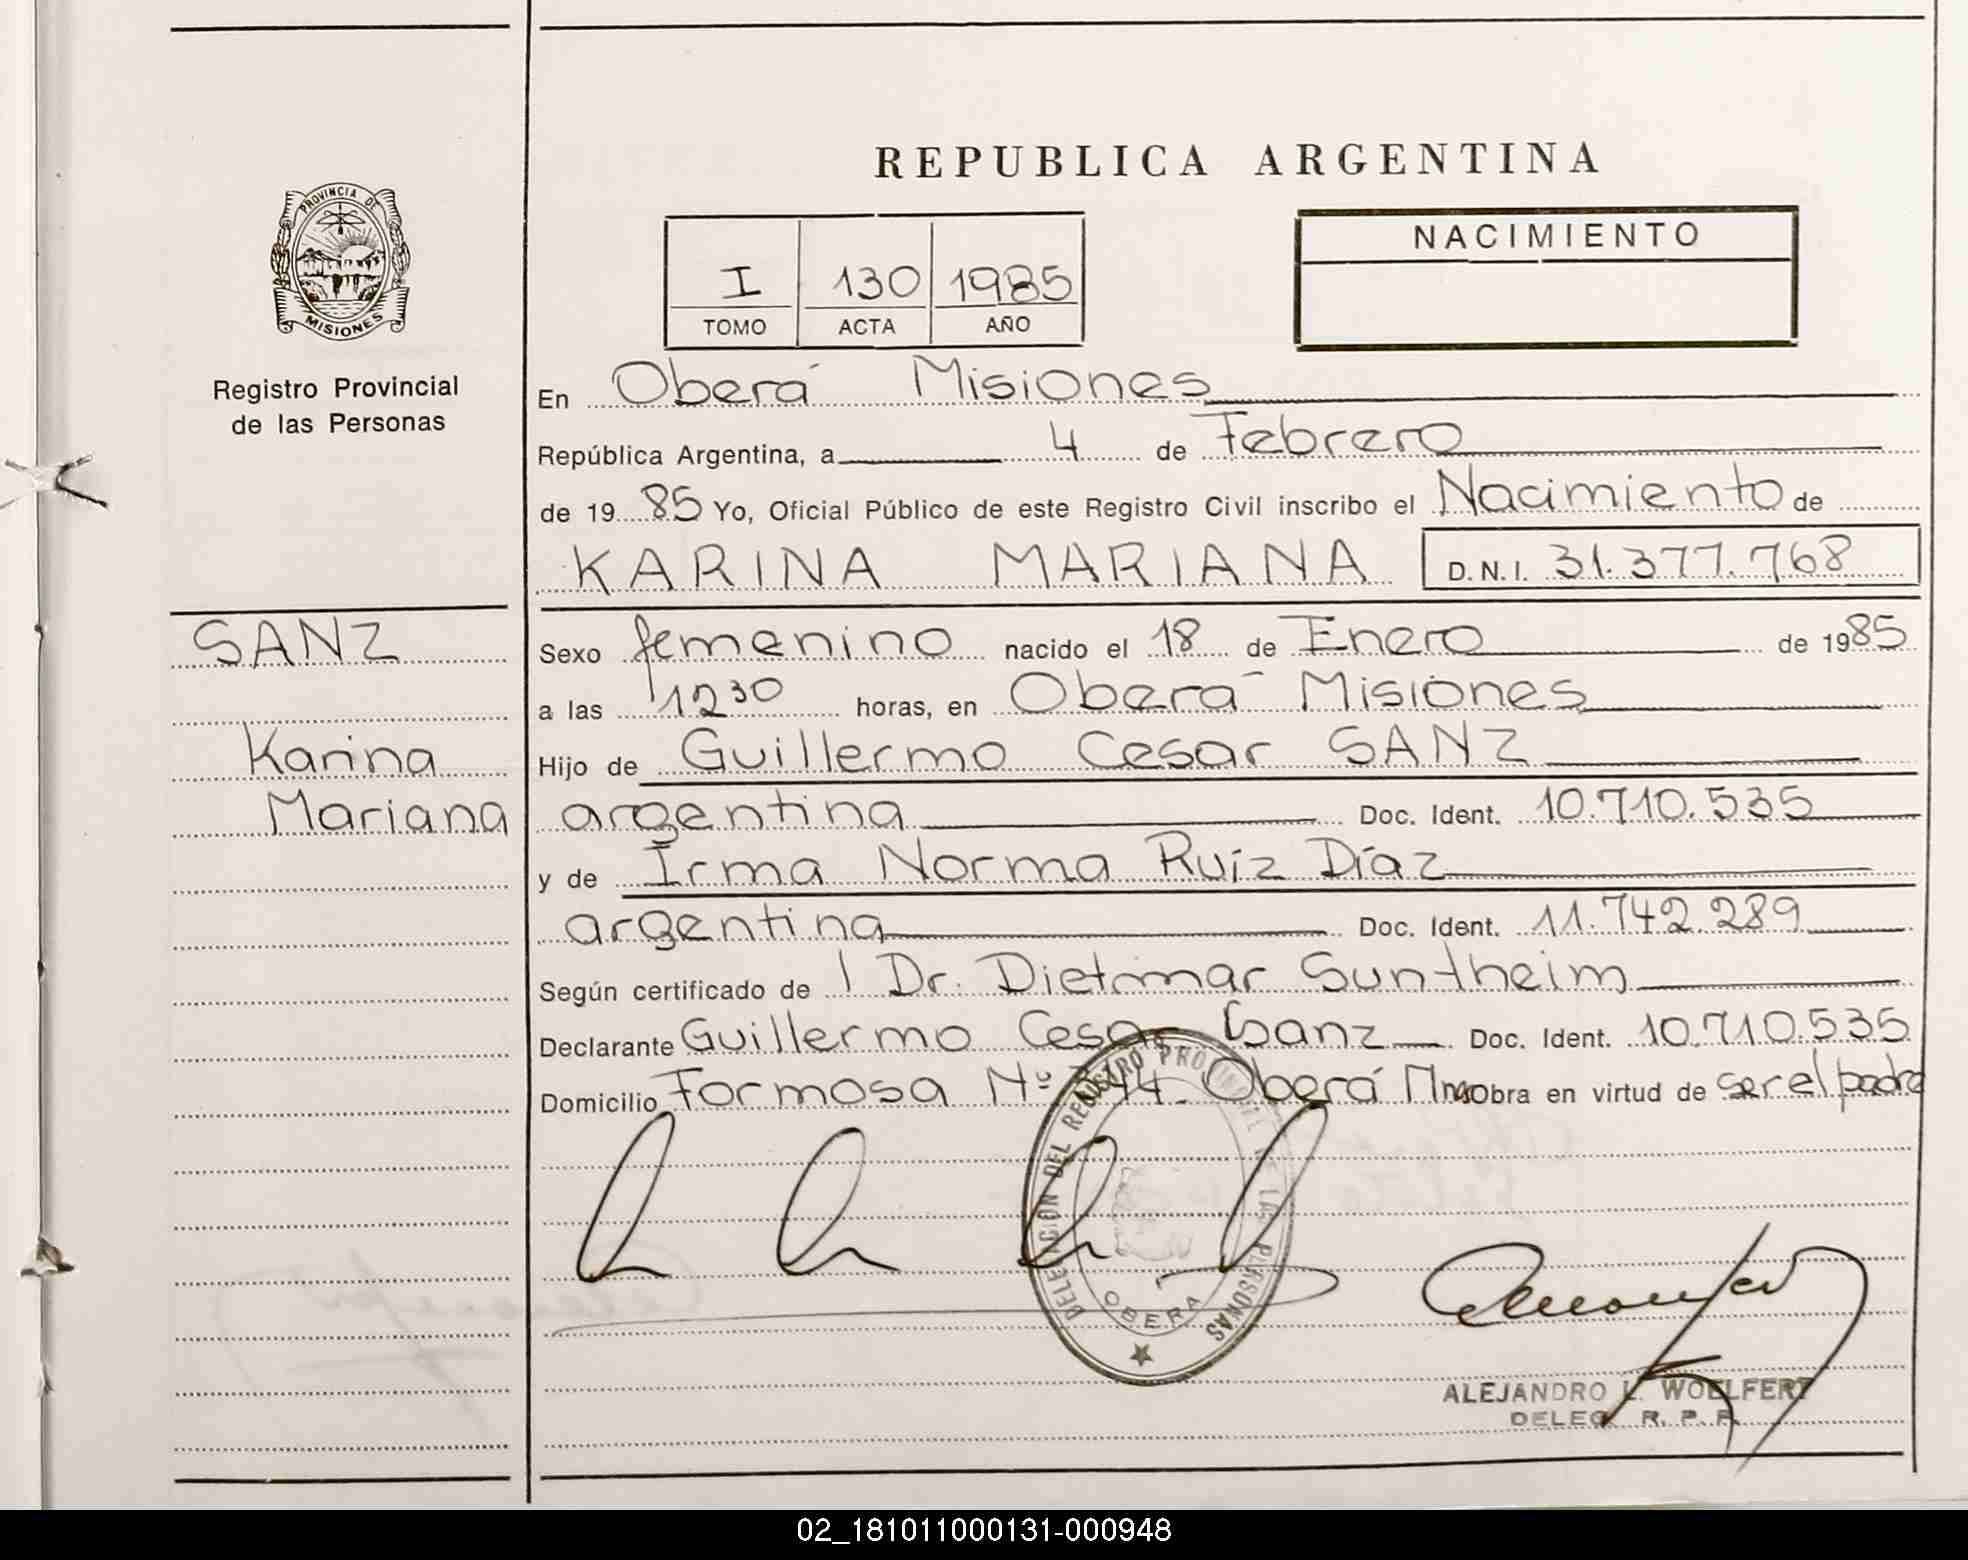 REPUBLICA ARGENTINA
PROVINCIA DE
MISIONES
Registro Provincial
de las Personas
I 130 1985
TOMO ACTA AÑO
NACIMIENTO
En Oberá Misiones
República Argentina, a 4 de Febrero
de 19 85 Yo, Oficial Público de este Registro Civil inscribo el Nacimiento de
KARINA MARIANA D.N.I. 31.377.768
SANZ
Karina
Mariana
Sexo femenino nacido el 18 de Enero de 1985
a las 12 30 horas, en Oberá Misiones
Hijo de Guillermo Cesar SANZ
argentina Doc. Ident. 10.710.535
y de Irma Norma Ruíz Díaz
argentina Doc. Ident. 11.742.289
Según certificado de Dr. Dietmar Suntheim
Declarante Guillermo Cesar Sanz Doc. Ident. 10.710.535
Domicilio Formosa Nº Oberá Mnes obra en virtud de ser el padre
DELEGACION DEL REGISTRO PROVINCIAL DE LAS PERSONAS
OBERA
ALEJANDRO L. WOELFERT
DELEG. R. P. P.
02_181011000131-000948